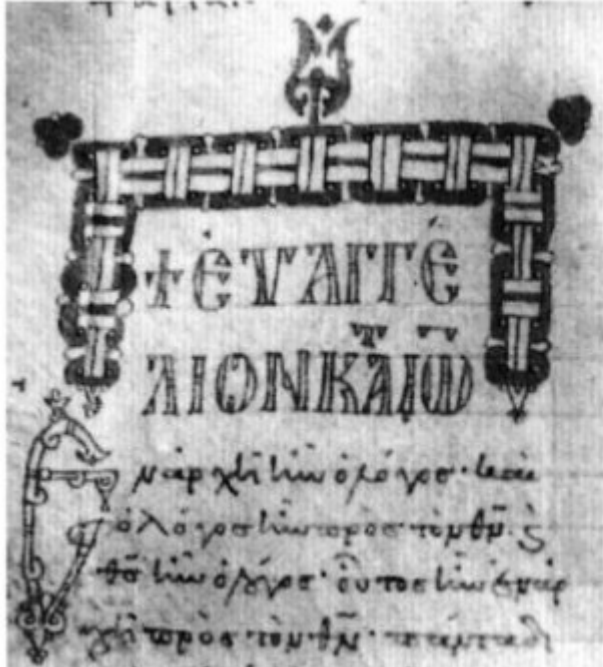 + ἐυαγγέ
λιον κατ ιω
Ἐν ἀρχῆ ἦν ὁ λόγος· καὶ
ὁ λόγος ἦν πρὸς τὸν θν̅· ϛ
θς̅ ἦν ὁ λόγος· οὗτος ἦν ἐν ἀρ
χῆ πρὸς τὸν θν̅· πάντα δι